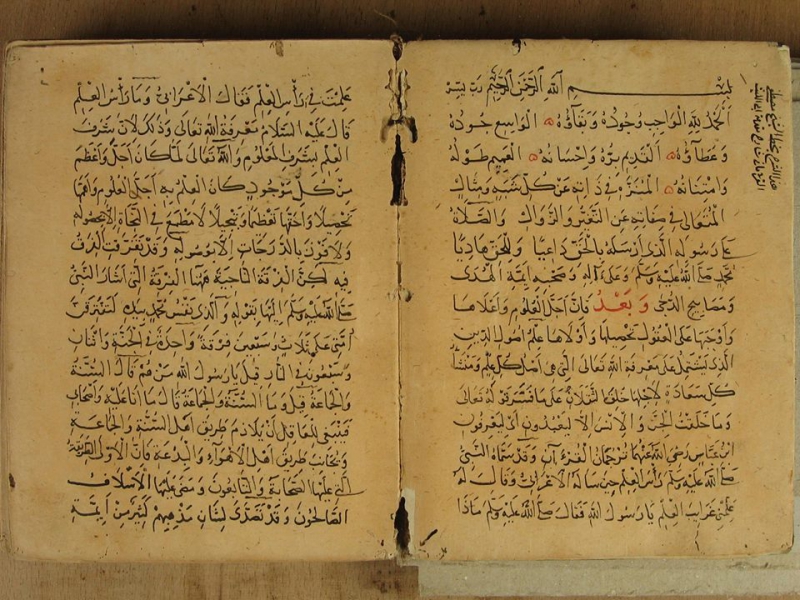 بسم الله الرحمن الرحيم رب يسر
الحمد لله الواجب وجوده وبقاؤه الواسع جوده
وعطاؤه القديم بره واحسانه العميم طوله
وامتنانه المنزه في ذاته عن كل شبه ومثال
المتعالي في صفاته عن التغير والزوال والصلاة
على رسوله الذي ارسله بالحق داعيا وللخلق هاديا
محمد صلى الله عليه وسلم وعلى آله وصحبه ايمة الهدى
ومصابيح الدجى وبعد فان اجل العلوم واعلاها
واوجبها على العقول تحصيلا واولاها علم اصول الدين
الذي يشتمل على معرفة الله تعالى التي هي اصل كل علم ومنشأ
كل سعادة لاجلها خلق الثقلان على ما قال تعالى
وما خلقت الجن والانس الا ليعبدون اي ليعرفون
ابن عباس رضي الله عنهما ترجمان القرءآن وقد سماه النبي
صلى الله عليه وسلم رأس العلم حين سأله الاعرابي وقال له
علمني غرايب العلم يا رسول الله فقال صلى الله عليه وسلم ماذا
علمت في رأس العلم فقال الاعرابي وما رأس العلم
قال عليه السلام معرفة الله تعالى وذلك لان شرف
العلم بشرف المعلوم والله تعالى لما كان اجل واعظم
من كل موجود كان العلم به اجل العلوم واهمها
تحصيلا واحقها تعظيما وتبجيلا لا مطمع في النجاة الا بحصوله
ولا فوز بالدرجات الا بوصوله وقد تفرقت الفرق
فيه لكن الفرقة الناجية منها الفرقة التي اشار النبي
صلى الله عليه وسلم اليها بقوله والذي نفس محمد بيده لتفترقن
امتي على ثلاث وسبعين فرقة واحدة في الجنة واثنان
وسبعون في النار قيل يا رسول الله من هم قال السنة
والجماعة قيل وما السنة والجماعة قال ما انا عليه واصحابي
فينبغي للعاقل ان يلازم طريق اهل السنة والجماعة
ويجانب طريق اهل الاهواء والبدعة فان الاول الطريقة
التي عليها الصحابة والتابعون ومضى عليها الاسلاف
الصالحون وقد تصدى لبيان مذهبهم كثير من ايمة